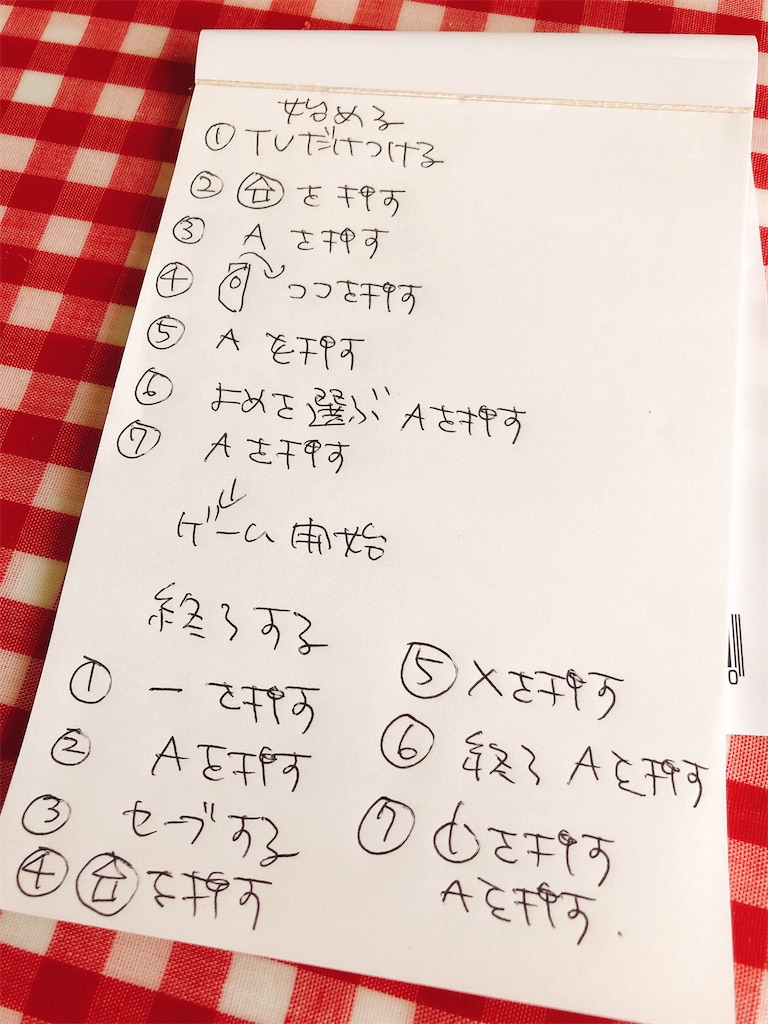 始める
① TVだけつける
② を押す
③ A を押す
④ つつを押す
⑤ A を押す
⑥ よめを選ぶ Aを押す
⑦ Aを押す
↓
ゲーム開始
終了する
① ー を押す
② Aを押す
③ セーブする
④ を押す
⑤ Xを押す
⑥ 終了 Aを押す
⑦ を押す
Aを押す.